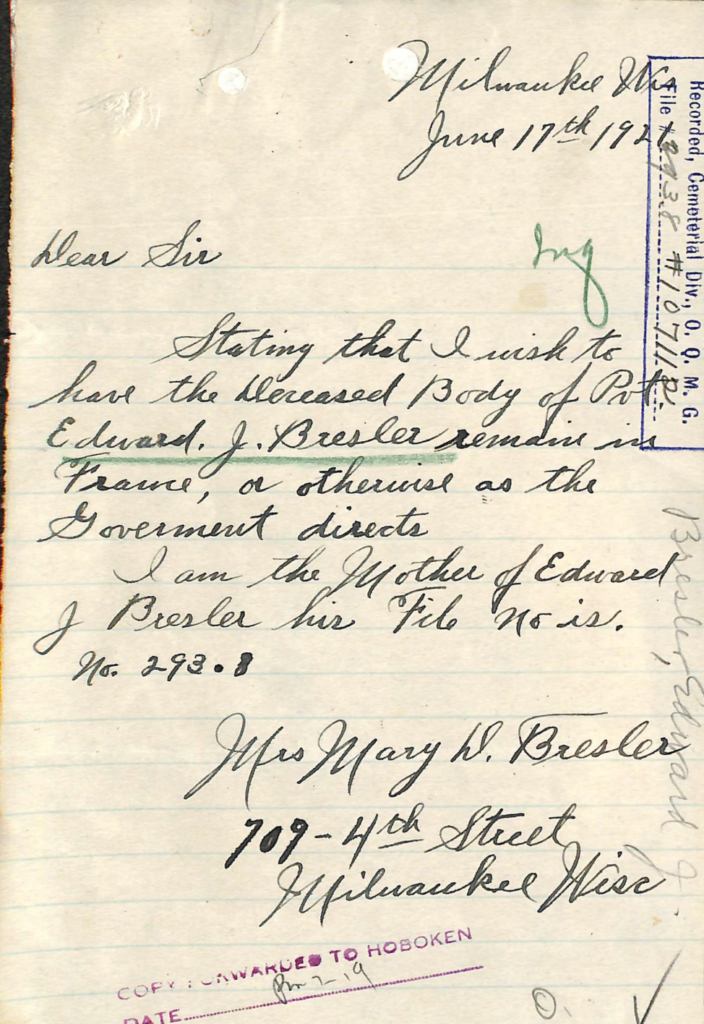 Milwaukee Wis
June 17th 1921
Dear Sir
Ing
Stating that I wish to
have the Deceased Body of Pvt.
Edward. J. Bresler remain in
France, or otherwise as the
Goverment directs
I am the Mother of Edward
J Bresler his File No is.
No. 293.8
Mrs Mary D. Bresler
709 - 4th Street
Milwaukee Wisc
COPY FORWARDED TO HOBOKEN
DATE
Recorded, Cemeterial Div., O. Q. M. G.
File # 293.8
Bresler, Edward J.